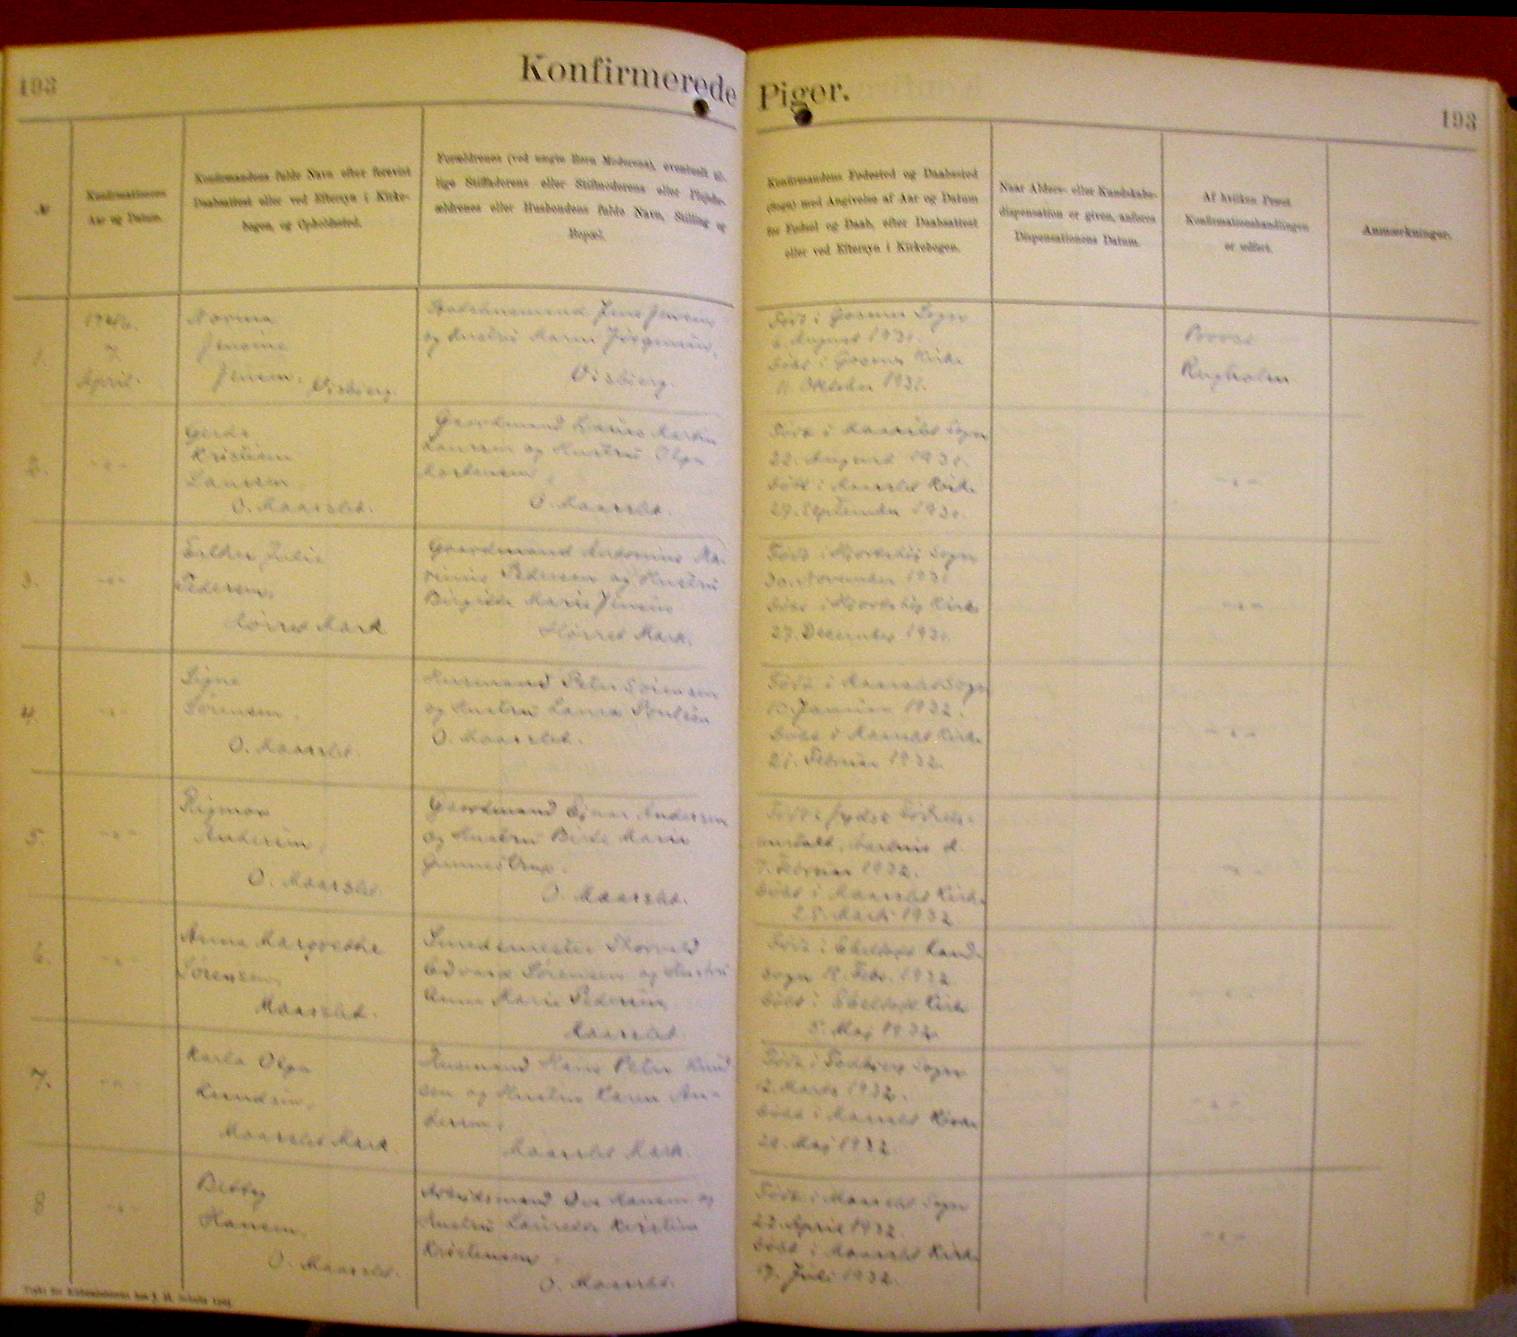 193
Konfirmerede Piger.
193
№
Konfirmationens
Aar og Datum.
Konfirmandens fulde Navn efter forevist
Daabsattest eller ved Eftersyn i Kirke-
bogen, og Opholdssted.
Forældrenes (ved uægte Børn Moderens), eventuelt til-
lige Stiffaderens eller Stifmoderens eller Plejefor-
ældrenes eller Husbondens fulde Navn, Stilling og
Bopæl.
Konfirmandens Fødested og Daabssted
(Sogn) med Angivelse af Aar og Datum
for Fødsel og Daab, efter Daabsattest
eller ved Eftersyn i Kirkebogen.
Naar Alders- eller Kundskabs-
dispensation er given, anføres
Dispensationens Datum.
Af hvilken Præst
Konfirmationshandlingen
er udført.
Anmærkninger.
1.
1946.
7.
April.
Norma
Jensine
Jensen.
Visbjerg.
Jens Jensen
og Hustru Maren Jørgensen.
Visbjerg.
Født i Gosmer Sogn
6. August 1931.
Døbt i Gosmer Kirke
11 Oktober 1931.
Provst
Rugholm
2.
- " -
Gerda
Kristine
Laursen
Ø. Maarslet.
Gaardmand Laurs Martin
Laursen og Hustru Olga
Mortensen
Ø. Maarslet.
Født i Maarslet Sogn
22. August 1931.
Døbt i Maarslet Kirke
27. September 1931.
- " -
3.
- " -
Esther Julie
Pedersen.
Hørret Mark
Gaardmand Antonius Ma-
rinus Pedersen og Hustru
Birgitte Marie Jensen
Hørret Mark.
Født i Hjortshøj Sogn
30. November 1931
Døbt i Hjortshøj Kirke
27. December 1931.
- " -
4.
- " -
Signe
Sørensen.
Ø. Maarslet.
Husmand Peter Sørensen
og Hustru Laura Poulsen
Ø. Maarslet.
Født i Maarslet Sogn
10. Januar 1932.
Døbt i Maarslet Kirke
21. Februar 1932.
- " -
5.
- " -
Rigmor
Andersen.
Ø. Maarslet.
Gaardmand Ejnar Andersen
og Hustru Birte Marie
Ø. Maarslet.
Født i jydsk Fødsels-
anstalt, Aarhus d.
7. Februar 1932.
Døbt i Maarslet Kirke
28. Marts 1932
- " -
6.
- " -
Anna Margrethe
Sørensen,
Maarslet.
Smedemester Thorvald
Edvard Sørensen og Hustru
Anna Marie Pedersen,
Maarslet.
Født i Ebeltoft Land-
sogn 18. Febr. 1932
Døbt i Ebeltoft Kirke
5. Maj 1932.
- " -
7.
- " -
Karla Olga
Knudsen,
Maarslet Mark.
Husmand Hans Peter Knud-
sen og Hustru Karen An-
dersen.
Maarslet Mark.
Født i Sogn
12. Marts 1932.
Døbt i Maarslet Kirke
29. Maj 1932.
- " -
8
- " -
Betty
Hansen.
Ø. Maarslet.
Arbejdsmand Ove Hansen og
Hustru Kristine
Kristensen
Ø. Maarslet.
Født i Maarslet Sogn
22. April 1932.
Døbt i Maarslet Kirke
17. Juli 1932.
- " -